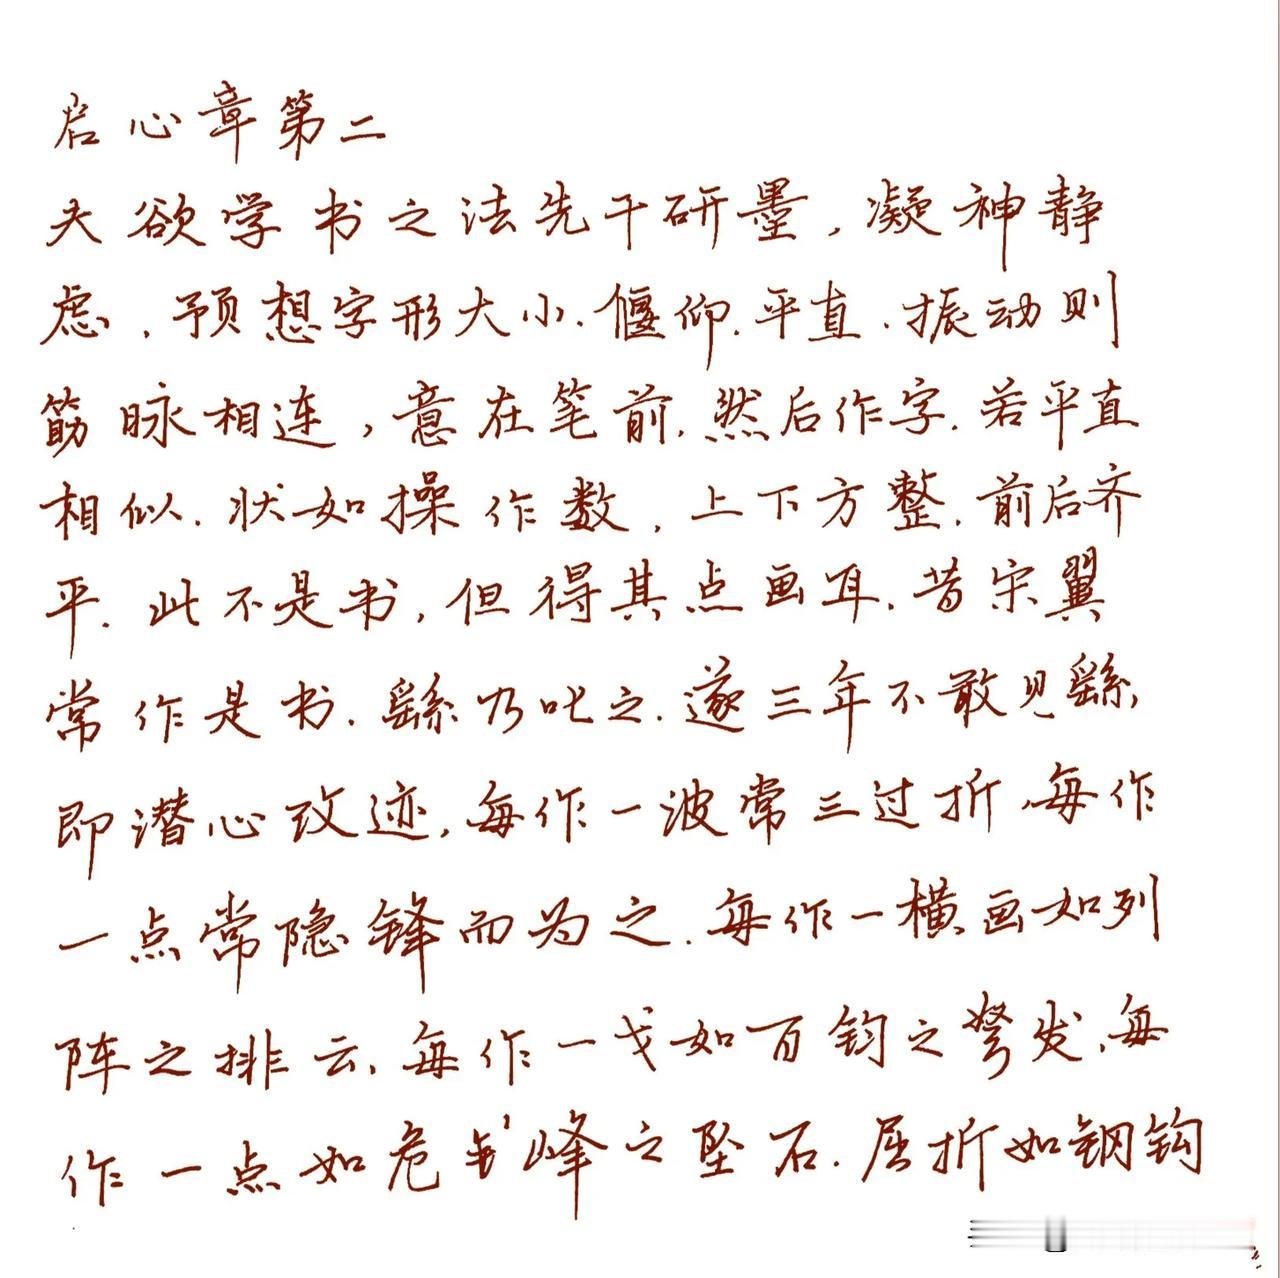 启心章第二
夫欲学书之法先干研墨，凝神静
虑，预想字形大小.偃仰.平直.振动则
筋脉相连，意在笔前.然后作字.若平直
相似.状如操作数，上下方整.前后齐
平.此不是书，但得其点画耳.昔宋翼
常作是书.繇乃叱之.遂三年不敢见繇，
即潜心改迹，每作一波常三过折，每作
一点常隐锋而为之.每作一横画如列
阵之排云，每作一戈如百钧之弩发，每
作一点如危峰之坠石.屈折如钢钩